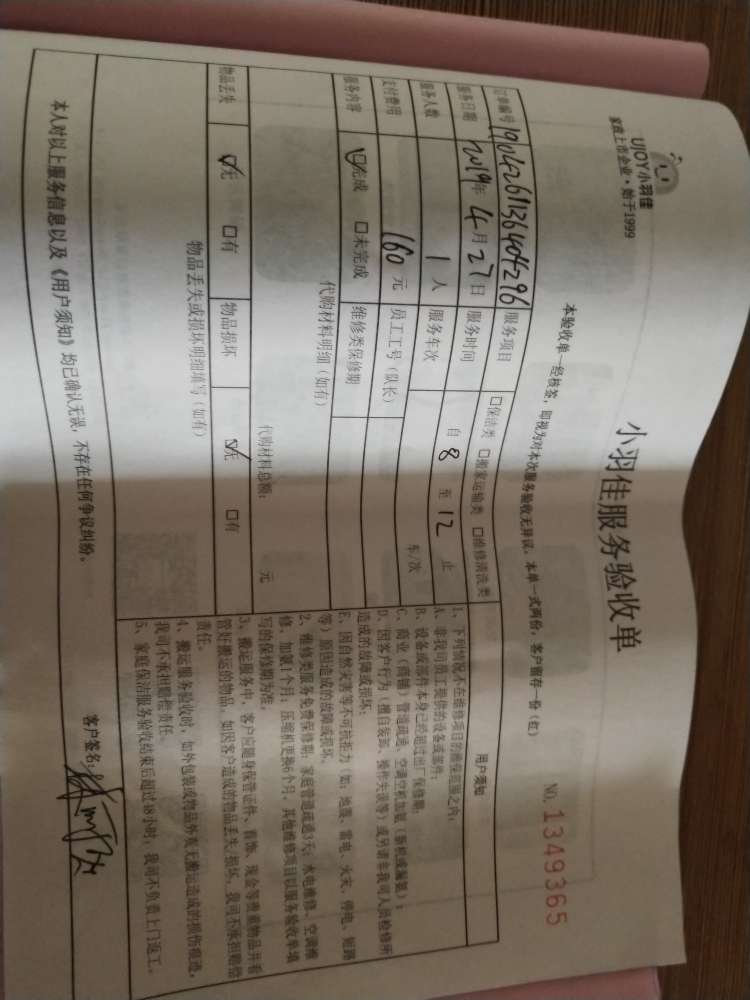 UJOY小羽佳
家政上市企业·始于1999
小羽佳服务验收单
本验收单一经核签，即视为对本次服务验收无异议，本单一式两份，客户留存一份（红）
NO. 1349365
订单编号 服务项目 □保洁类 □搬家运输类 □维修清洗类
服务日期 2019年 4月 27日 服务时间 自 8 至 12 止
服务人数 1 人 服务车次 车/次
支付费用 160 元 员工工号（队长）
服务内容 ☑完成 □未完成 维修类保修期
代购材料明细（如有）
代购材料总额： 元
物品丢失 ☑无 □有 物品损坏 ☑无 □有
物品丢失或损坏明细填写（如有）
用户须知
1、下列情况不在维修项目的维保范围之内：
A、非我司员工提供的设备或部件；
B、设备或部件本身已经超过出厂保修期；
C、商业（商铺）管道疏通、空调空机加氨（新机或漏氨）；
D、因客户行为（擅自装卸、操作失误等）或另请非我司人员检修所
造成的故障或损坏；
E、因自然灾害等不可抗拒力（如：地震、雷电、火灾、停电、短路
等）原因造成的故障或损坏。
2、维修类服务免费保修期：家庭管道疏通3天；水电维修、空调维
修、加氨1个月；压缩机更换6个月，其他维修项目以服务验收单填
写的保修期为准。
3、搬运服务中，客户应随身保管证件、首饰、现金等贵重物品并看
管好搬运的物品，如因客户造成的物品丢失、损坏，我司不承担赔偿
责任。
4、搬运服务验收时，如外包装或物品外表无搬运造成的损伤痕迹，
我司不承担赔偿责任。
5、家庭保洁服务验收结束后超过48小时，我司不负责上门返工。
本人对以上服务信息以及《用户须知》均已确认无误，不存在任何争议纠纷。
客户签名：